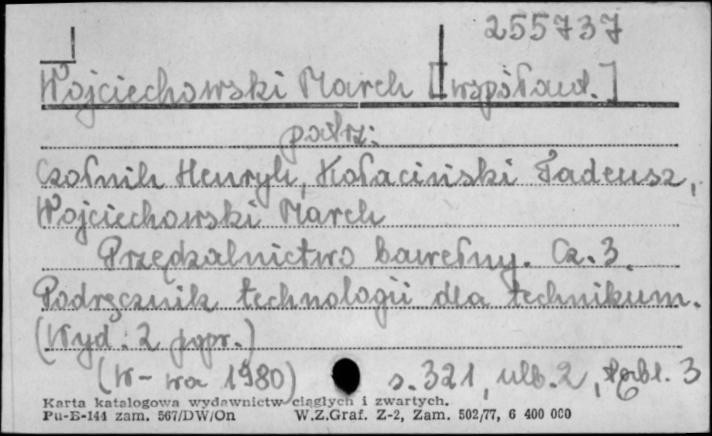 255737
Wojciechowski Marek [współaut.]
patrz:
Czołnik Henryk, Kołaciński Tadeusz,
Wojciechowski Marek
Przędzalnictwo bawełny. Cz. 3.
Podręcznik technologii dla technikum.
(Wyd. 2 popr.)
(W-wa 1980) s. 321, ulb. 2, tabl. 3
Karta katalogowa wydawnictw ciągłych i zwartych.
Pu-B-144 zam. 567/DW/On W.Z.Graf. Z-2, Zam. 502/77, 6 400 000